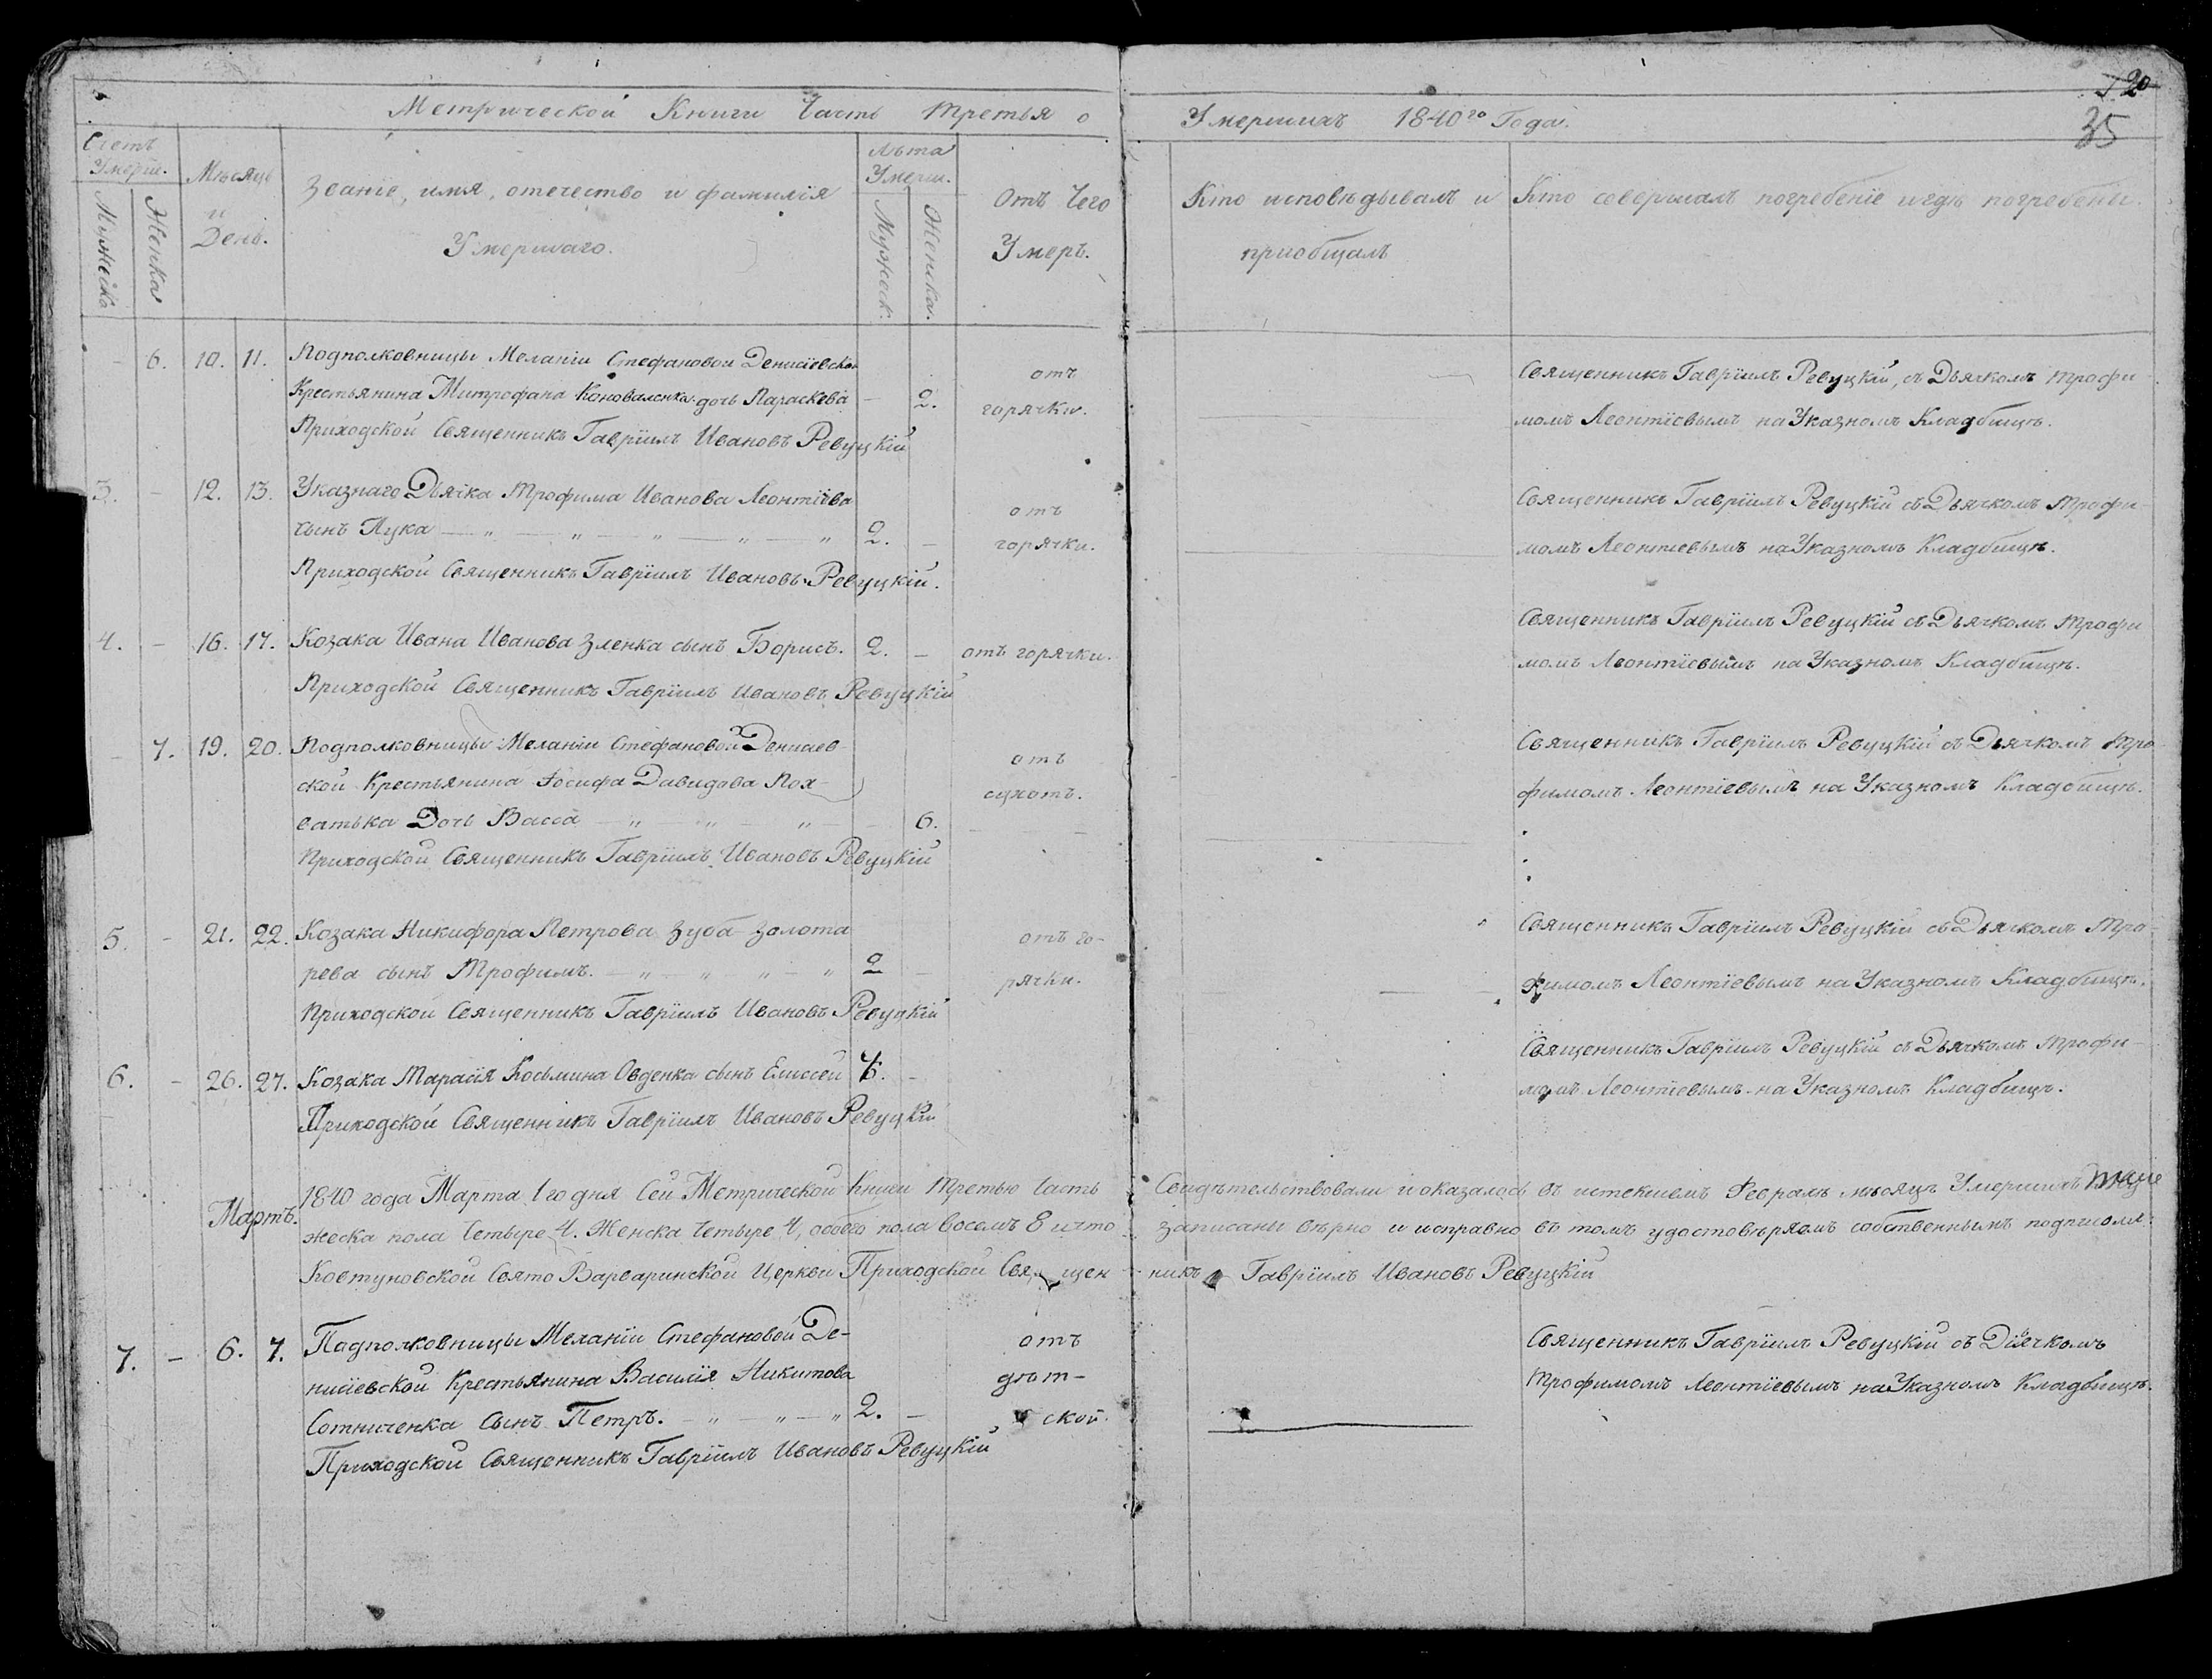 20
35
Метрической Книги Часть Третья о Умершихъ 1840го Года.
Счетъ Умерш.
Мужеска
Женска
Мѣсяцъ и День.
Званіе, имя, отечество и фамилія
Умершаго.
Лѣта Умерш.
Мужеск.
Женска.
Отъ Чего
Умеръ.
Кто исповѣдывалъ и
приобщалъ
Кто совершалъ погребеніе и гдѣ погребены.
6. 10. 11. Подполковницы Меланіи Стефановой Денисіевской отъ Священникъ Гавріилъ Ревуцкій, съ Дьячкомъ Трофи-
Крестьянина Митрофана Коноваленка дочь Параскева 2. горячки. момъ Леонтіевымъ на Указномъ Кладбищѣ.
Приходской Священникъ Гавріилъ Ивановъ Ревуцкій
3. - 12. 13. Указнаго Дьячка Трофима Иванова Леонтіева отъ Священникъ Гавріилъ Ревуцкій съ Дьячкомъ Трофи-
сынъ Лука 2. - горячки. момъ Леонтіевымъ на Указномъ Кладбищѣ.
Приходской Священникъ Гавріилъ Ивановъ Ревуцкій.
Священникъ Гавріилъ Ревуцкій съ Дьячкомъ Трофи
4. - 16. 17. Козака Ивана Иванова Зленка сынъ Борисъ. 2. - отъ горячки. момъ Леонтіевымъ на Указномъ Кладбищѣ.
Приходской Священникъ Гавріилъ Ивановъ Ревуцкій
- 7. 19. 20. Подполковницы Меланіи Стефановой Денисіев- отъ Священникъ Гавріилъ Ревуцкій съ Дьячкомъ Тро-
ской Крестьянина Іосифа Давидова Пох- сухотъ. фимомъ Леонтіевымъ на Указномъ Кладбищѣ.
ватька Дочь Васса 6.
Приходской Священникъ Гавріилъ Ивановъ Ревуцкій
5. - 21. 22. Козака Никифора Петрова Зуба-Золота отъ го- Священникъ Гавріилъ Ревуцкій съ Дьячкомъ Тро-
рева сынъ Трофимъ. 2 - рячки. фимомъ Леонтіевымъ на Указномъ Кладбищѣ.
Приходской Священникъ Гавріилъ Ивановъ Ревуцкій
Священникъ Гавріилъ Ревуцкій съ Дьячкомъ Трофи-
6. - 26. 27. Козака Тарасія Косьмина Овденка сынъ Елисей момъ Леонтіевымъ на Указномъ Кладбищѣ.
Приходской Священникъ Гавріилъ Ивановъ Ревуцкій
1840 года Марта 1го дня Сей Метрической Книги Третью Часть Свидѣтельствовали и оказалось въ истекшемъ Февралѣ мѣсяцѣ Умершихъ
Мартъ. жеска пола Четыре 4. Женска Четыре 4, обоего пола восемъ 8 и что записаны вѣрно и исправно въ томъ удостовѣряемъ собственнымъ подписомъ
Ковтуновской Свято Варваринской Церкви Приходской Священникъ Гавріилъ Ивановъ Ревуцкій
7. - 6. 7. Подполковницы Меланіи Стефановой Де- отъ Священникъ Гавріилъ Ревуцкій съ Діячкомъ
нисіевской Крестьянина Василія Никитова дѣт- Трофимомъ Леонтіевымъ на Указномъ Кладбищѣ.
Сотниченка Сынъ Петръ. 2. - ской.
Приходской Священникъ Гавріилъ Ивановъ Ревуцкій